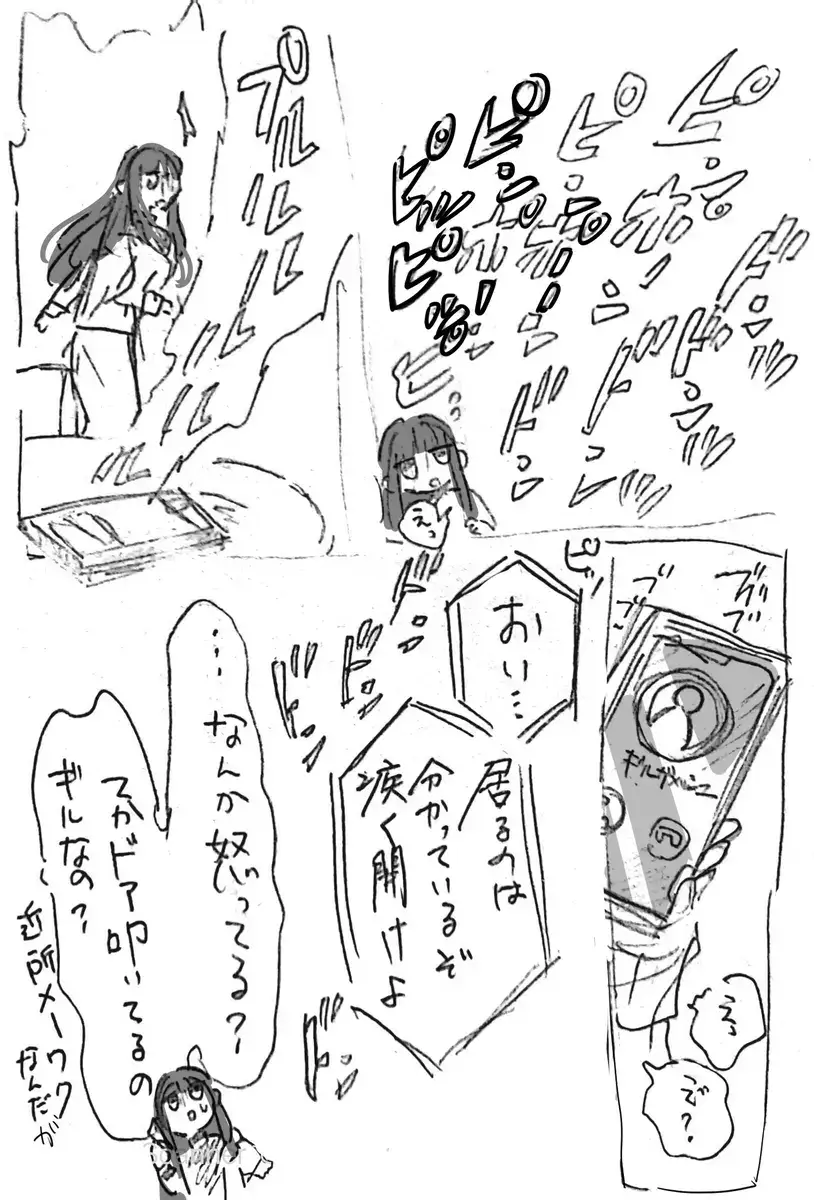 ピンポーン
ピンポーン
ピンポーン
ピンポーン
ドンドンドンッ
ドンドンドンッ
ドンドン
ドンッ
えっ
プルルルルルルル
ブブブブ
ブブ
ピッ
ギルガメッシュ
えっ
で?
おい…
居るのは
分かっているぞ
疾く開けよ
ドンッ
ドンッ
ドンッ
…なんか怒ってる?
てかドア叩いてるの
ギルなの?
近所メーワク
なんだが
ドンッ